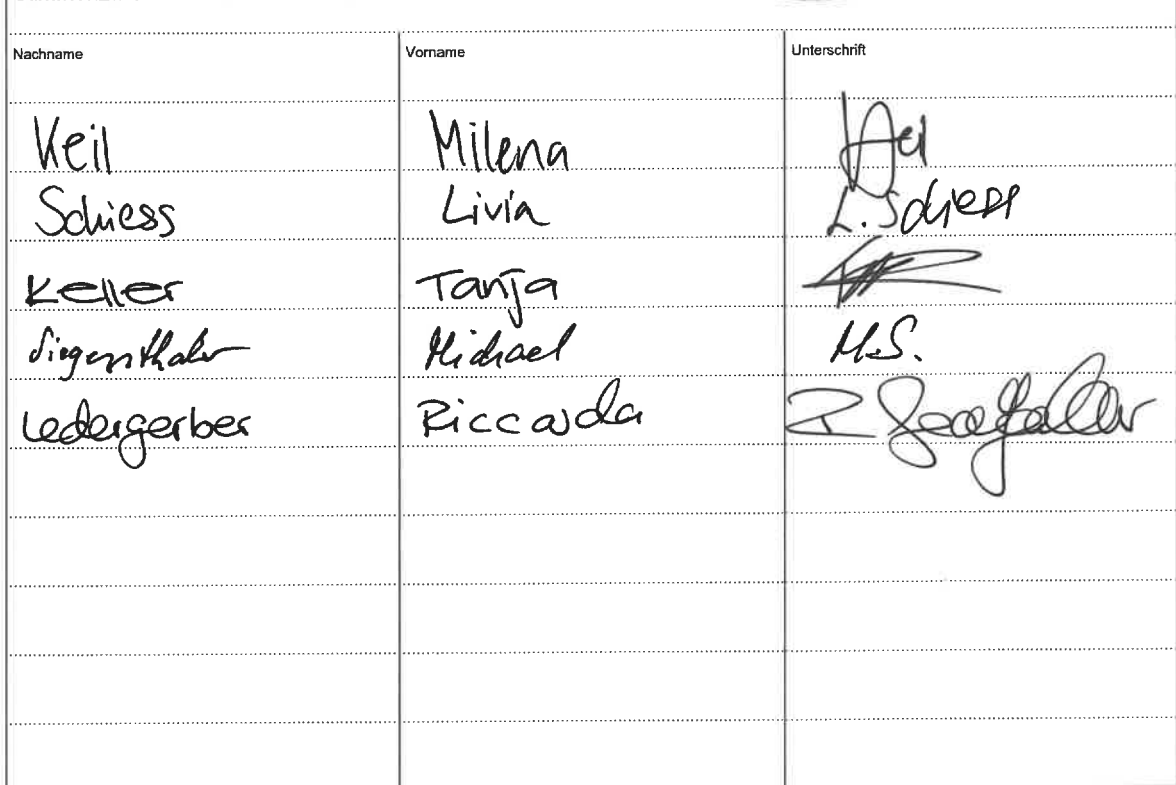 Nachname Vorname Unterschrift
Keil Milena
Schiess Livia L. Schiess
Keller Tanja
Siegenthaler Michael M.S.
Ledergerber Riccarda R